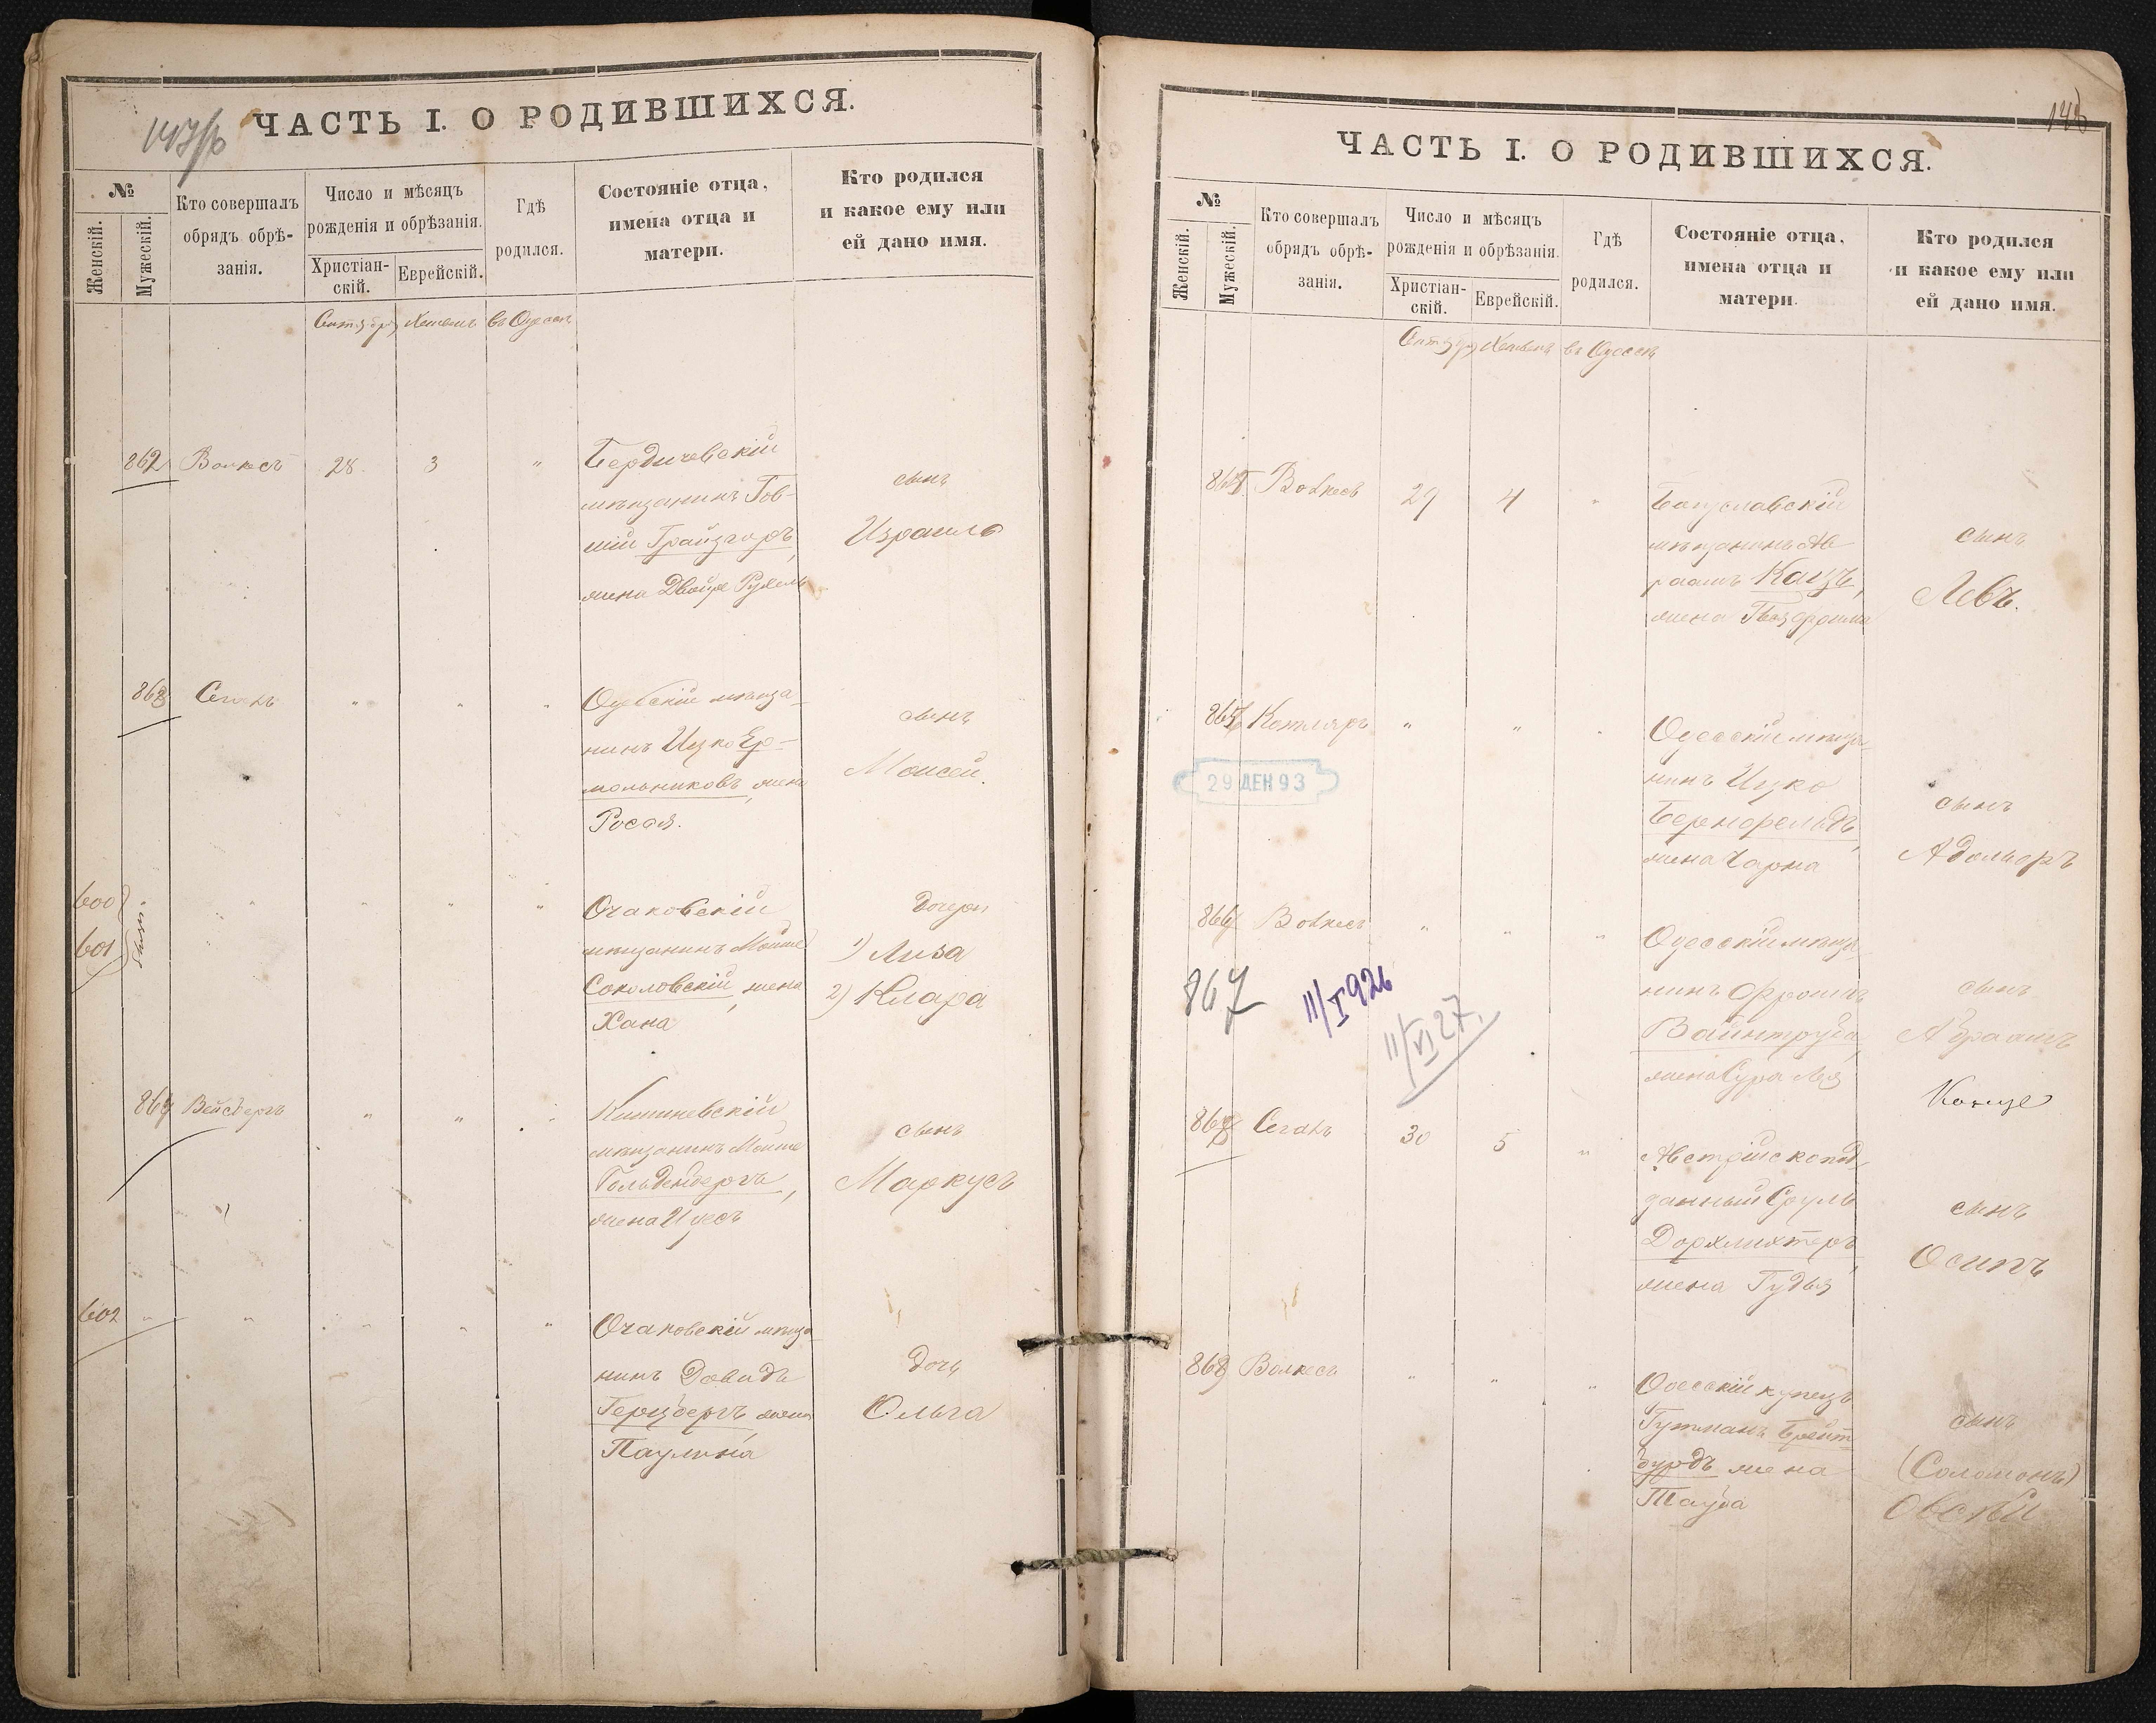 147/об
ЧАСТЬ I. О РОДИВШИХСЯ.
№
Женскій.
Мужескій.
Кто совершалъ
обрядъ обрѣ-
занія.
Число и мѣсяцъ
рожденія и обрѣзанія.
Христіан-
скій.
Еврейскій.
Гдѣ
родился.
Состояніе отца,
имена отца и
матери.
Кто родился
и какое ему или
ей дано имя.
въ Одессѣ
862 Волкесъ 28 3 "
Бердичевскій
мѣщанинъ Тов-
Грайзгоръ,
жена Двойра Рухель
сынъ
Израиль
863 Сегаль " " "
Одесскій мѣща-
нинъ Ицко Ер-
мольниковъ, жена
Росся.
сынъ
Моисей.
600
601
" " " "
Очаковскій
мѣщанинъ Мойше
Соколовскій, жена
Хана
дочери
1) Лиза
2) Клара
864 Вейсбергъ " " "
Кишиневскій
мѣщанинъ Мойше
Гольденбергъ,
жена
сынъ
Маркусъ
602 " " " " "
Очаковскій мѣща
нинъ Довидъ
Герцбергъ жена
Паулина
дочь
Ольга
148
ЧАСТЬ I. О РОДИВШИХСЯ.
№
Женскій.
Мужескій.
Кто совершалъ
обрядъ обрѣ-
занія.
Число и мѣсяцъ
рожденія и обрѣзанія.
Христіан-
скій.
Еврейскій.
Гдѣ
родился.
Состояніе отца,
имена отца и
матери.
Кто родился
и какое ему или
ей дано имя.
въ Одессѣ
865 Волкесъ 29 4 "
Богуславскій
мѣщанинъ Ав
раамъ Кацъ,
жена
сынъ
Левъ.
Котляръ " " "
29 ДЕН 93
Одесскій мѣща
нинъ Ицко
Бернфельдъ,
жена Чарна
сынъ
Адольфъ
Волкесъ " " "
867
11/I 926
11/VI 27.
Одесскій мѣща
нинъ Фроимъ
Вайнтрубъ,
жена Сура Лея
сынъ
Абрамъ
868 Сегаль 30 5 "
Австрійскопод
данный Сруль
Дорхлихтеръ,
жена Гудья
сынъ
Осипъ
Волкесъ " " "
Одесскій купецъ
Гутманъ Брейт
бурдъ жена
Тауба
сынъ
(Соломонъ)
Овсѣй